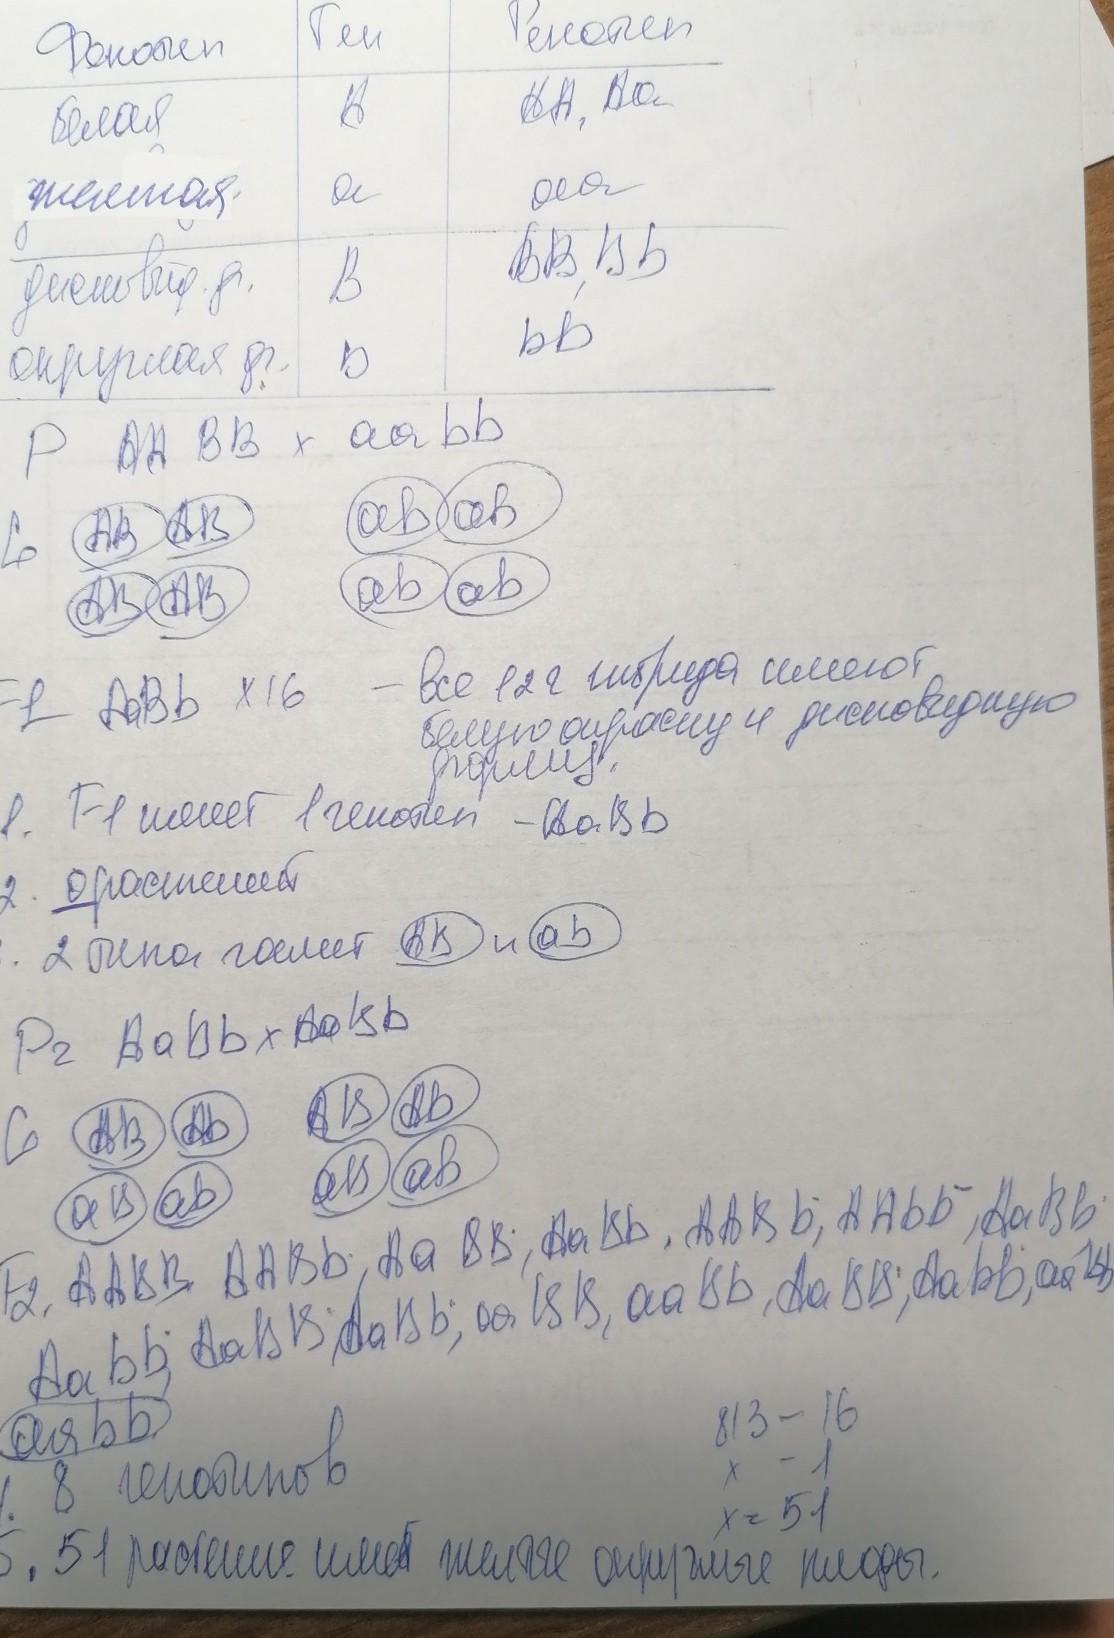 Фенотип Ген Генотип
белая А АА, Аа
желтая а аа
дисковид. ф. В ВВ, Вb
округлая ф. b bb
P AA BB x aa bb
G AB AB ab ab
AB AB ab ab
F1 AaBb x16 - Все 122 гибрида имеют
белую окраску и дисковидную
форму.
1. F1 имеет 1 генотип - AaBb
2. 0 растений
. 2 типа гамет AB и ab
P2 AaBb x AaBb
G AB Ab AB Ab
aB ab aB ab
F2. AABB AABb, AaBB, AaBb, AABb, AAbb, AaBb
Aabb, AaBB, AaBb, aaBB, aaBb, AaBB, Aabb, aaBb
aabb
813 - 16
x - 1
x = 51
. 8 генотипов
5. 51 растение имеет желтые округлые плоды.